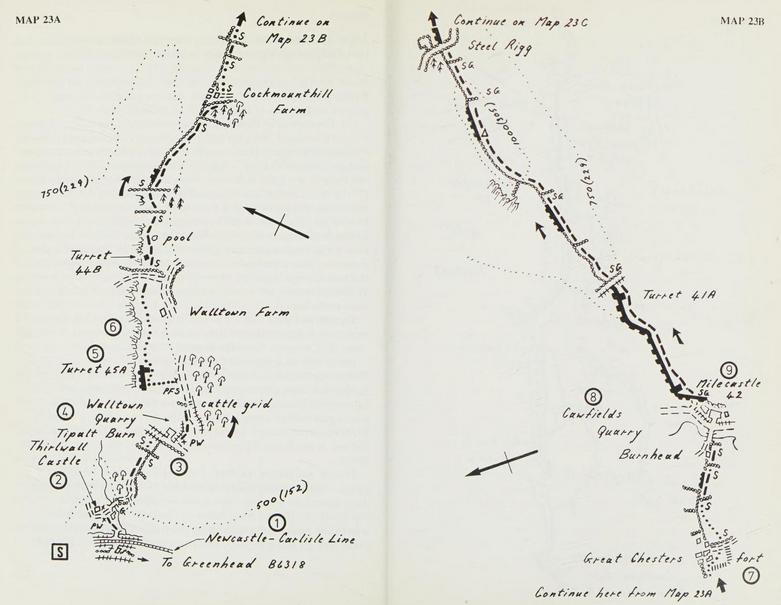 MAP 23A
Continue on
Map 23B
S
S
S
Cockmounthill
Farm
S
750(229)
S
S
pool
Turret
44B
S
Walltown Farm
6
5
Turret 45A
PFS
cattle grid
4
Walltown
Quarry
PW
Tipalt Burn
Thirlwall
Castle
S
S
3
2
G
500(152)
PW
1
Newcastle-Carlisle Line
S
To Greenhead B6318
MAP 23B
Continue on Map 23C
Steel Rigg
SG
SG
1000(305)
750(229)
SG
SG
Turret 41A
9
Milecastle
42
SG
8
Cawfields
Quarry
Burnhead
S
S
S
Great Chesters fort
7
Continue here from Map 23A